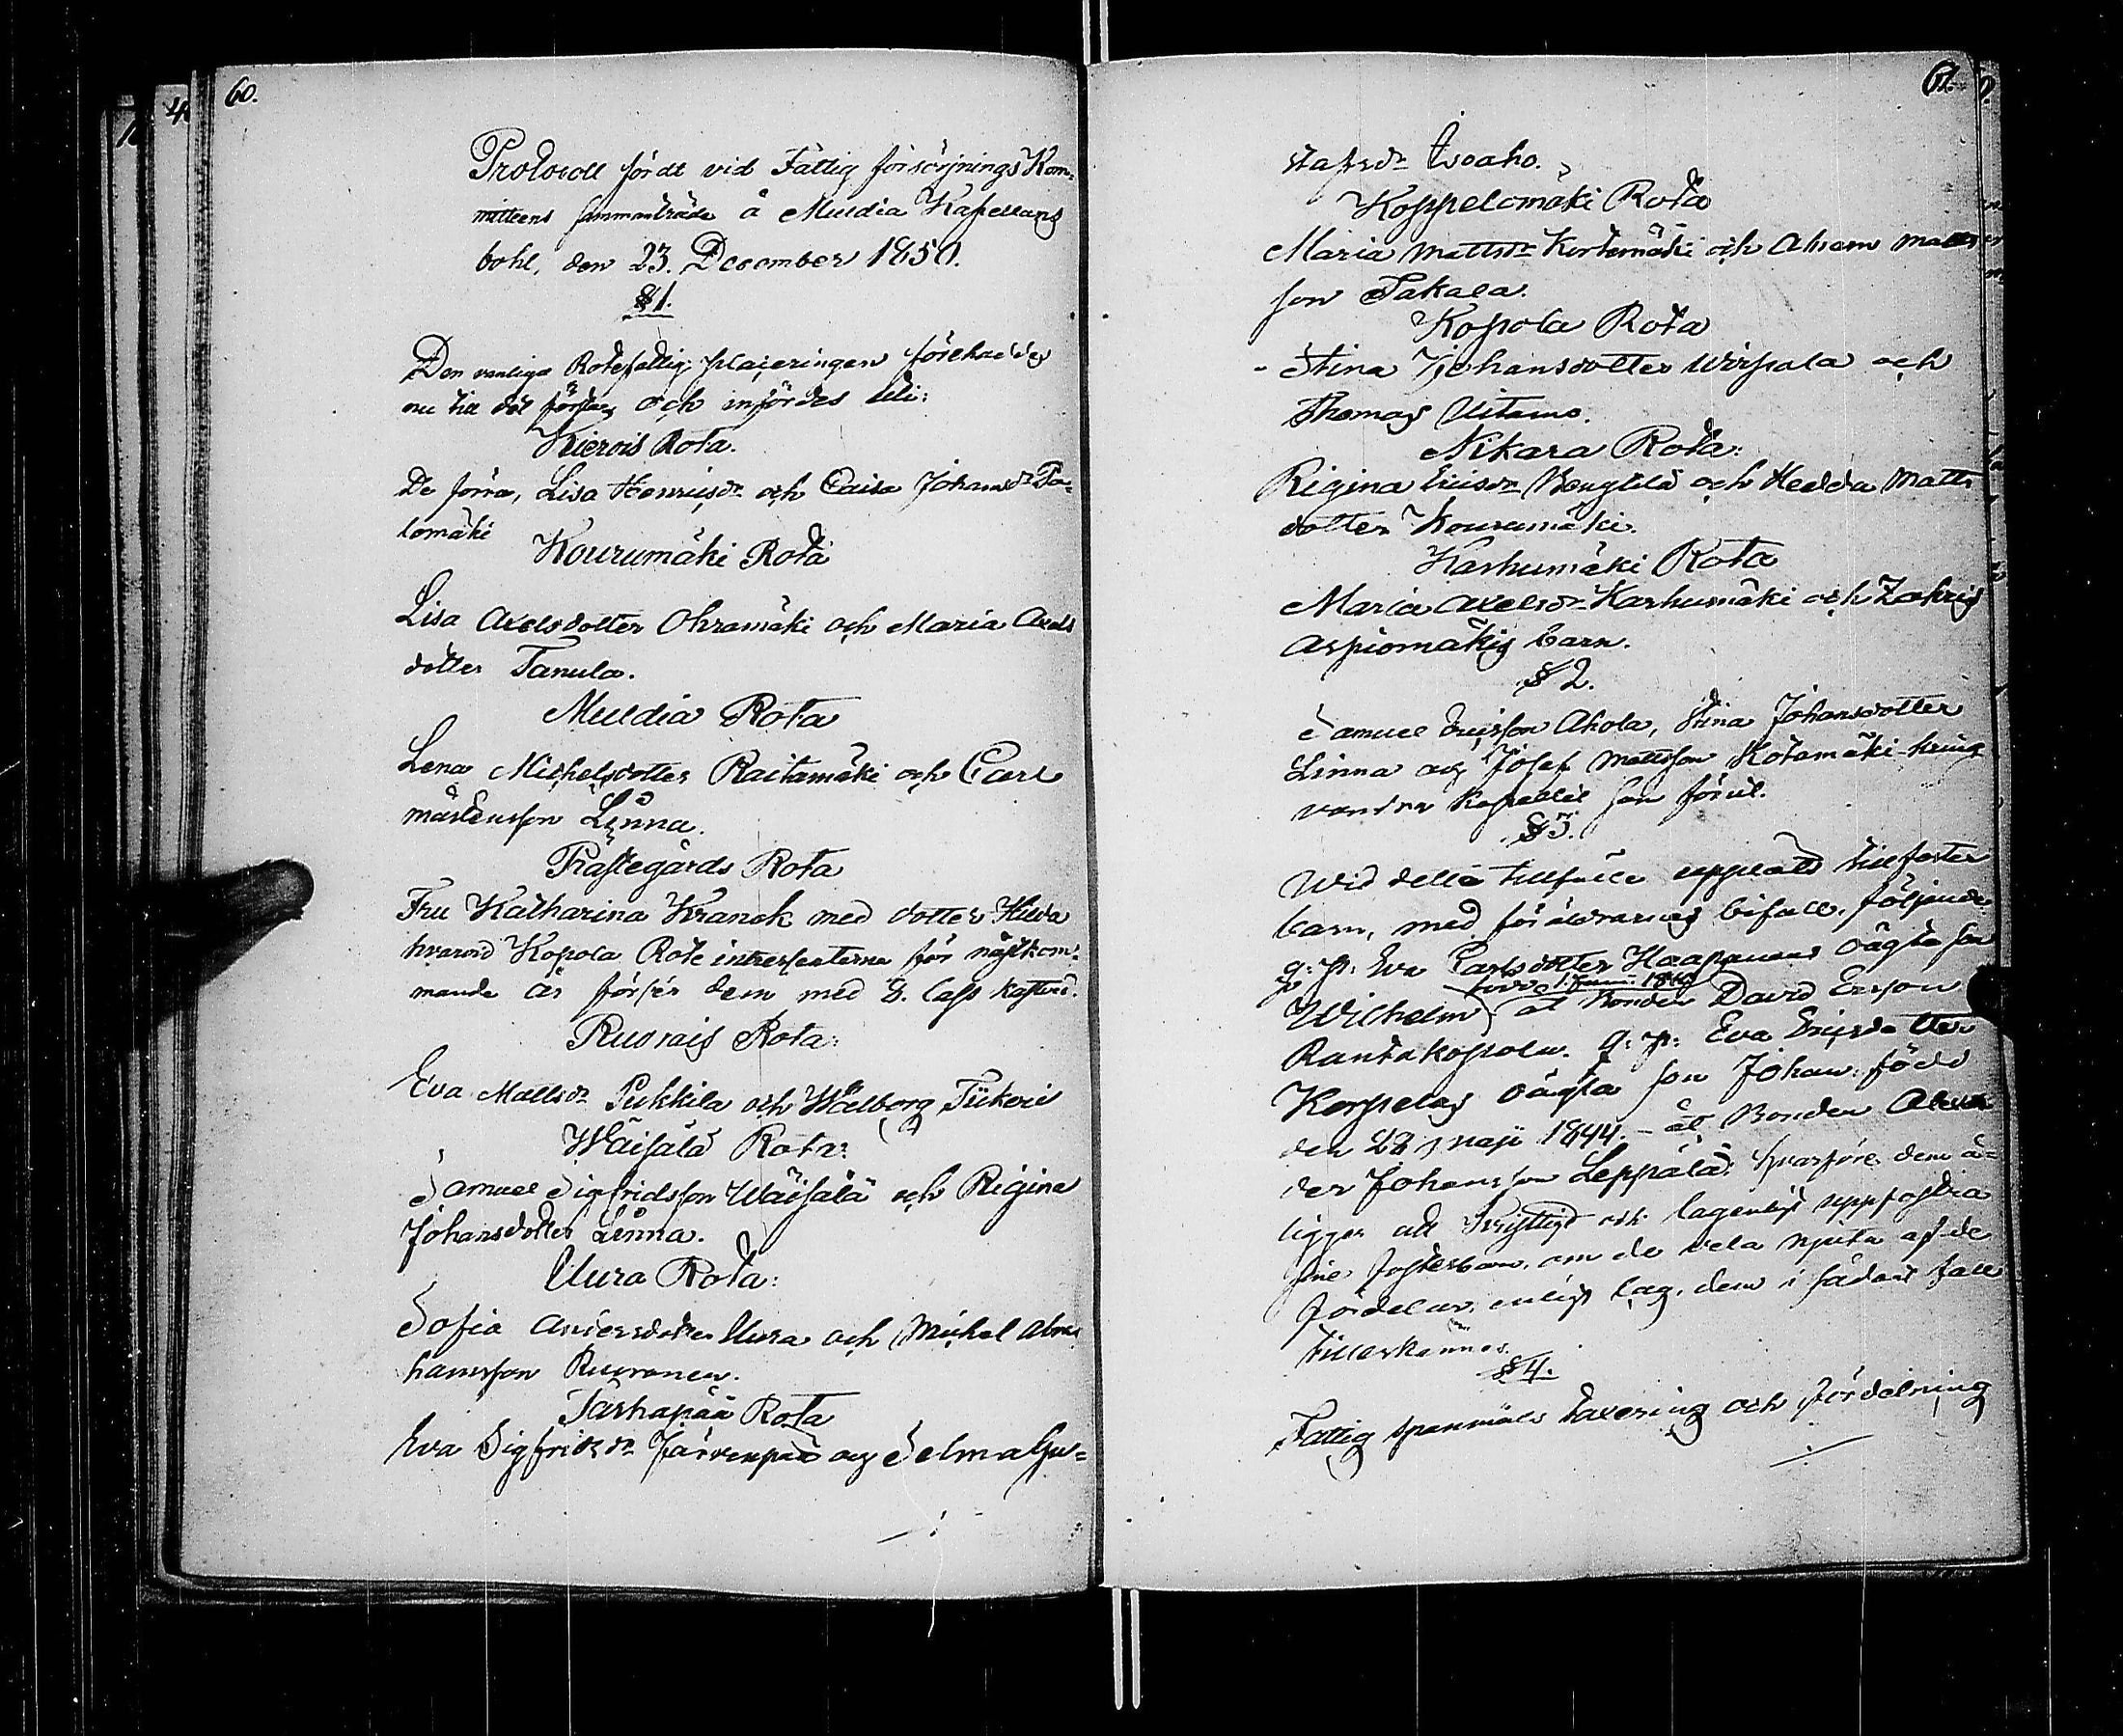 60.
Protocoll fördt vid Fattig försörjnings Kom-
mitteens sammanträde å Muldia Kapellans
bohl, den 23. December 1850.
§ 1.
Den vanliga Rotefattig placeringen förehades
nu till det första och infördes uti:
Kierois Rota.
De förra, Lisa Henricsdr och Caisa Johansdr Pa-
lomäki
Kourumäki Rota
Lisa Axelsdotter Ohramäki och Maria Axels
dotter Tanula.
Muldia Rota
Lena Michelsdotter Raitamäki och Carl
mårtensson Linna.
Prästegårds Rota
Fru Katharina Kranck med dotter Hilda
hvarvid Kopola Rote intressenterna för nästkom-
mande år förser dem med 8. lass kastved.
Ruorais Rota:
Eva Mattsdr Pukkila och Walborg
Wäisälä Rota:
Samuel Sigfridsson Wäisälä och Rigina
Johansdotter Linna.
Uura Rota:
Sofia Andersdotter Uura och Michel Abra
hamsson Ruoranen.
Tarhapää Rota
Eva Sigfridsdr Järvenpää och Selma Gu-
61.
stafsdr Isoaho.
Koppelomäki Rota
Maria Mattsdr och Abram Matts
son Takala.
Kopola Rota
Stina Johansdotter Wirpala och
Thomas Uitamo.
Nikara Rota:
Rigina Ericsdr och Hedda Matts
dotter Kourumäki.
Karhumäki Rota
Maria Axelsdr Karhumäki och Zakris
Aspiomäkis barn.
§ 2.
Samuel Ericsson Ahola, Stina Johansdotter
Linna och Josef Mattsson Kotamäki kring
vandra Kapellet som förut.
§ 3.
Wid detta tillfälle uppläts till foster
barn, med föräldrarnes bifall, följande
q: p: Eva Carlsdotter Haapanens oägta son
Wilhelm född 1. Juni 184 åt Bonden David Ersson
Rantakopola. q: p: Eva Ericsdotter
Korpelas oägta son Johan född
den 28 maji 1844. - åt Bonden Alexan
der Johansson Leppälä: hvarföre dem å-
ligger att kristligt och lagenligt uppfostra
sine fosterbarn, om de vela njuta af de
fördelar, enligt lag, dem i sådant fall
tillerkännes.
§ 4.
Fattig spanmåls taxering och fördelning